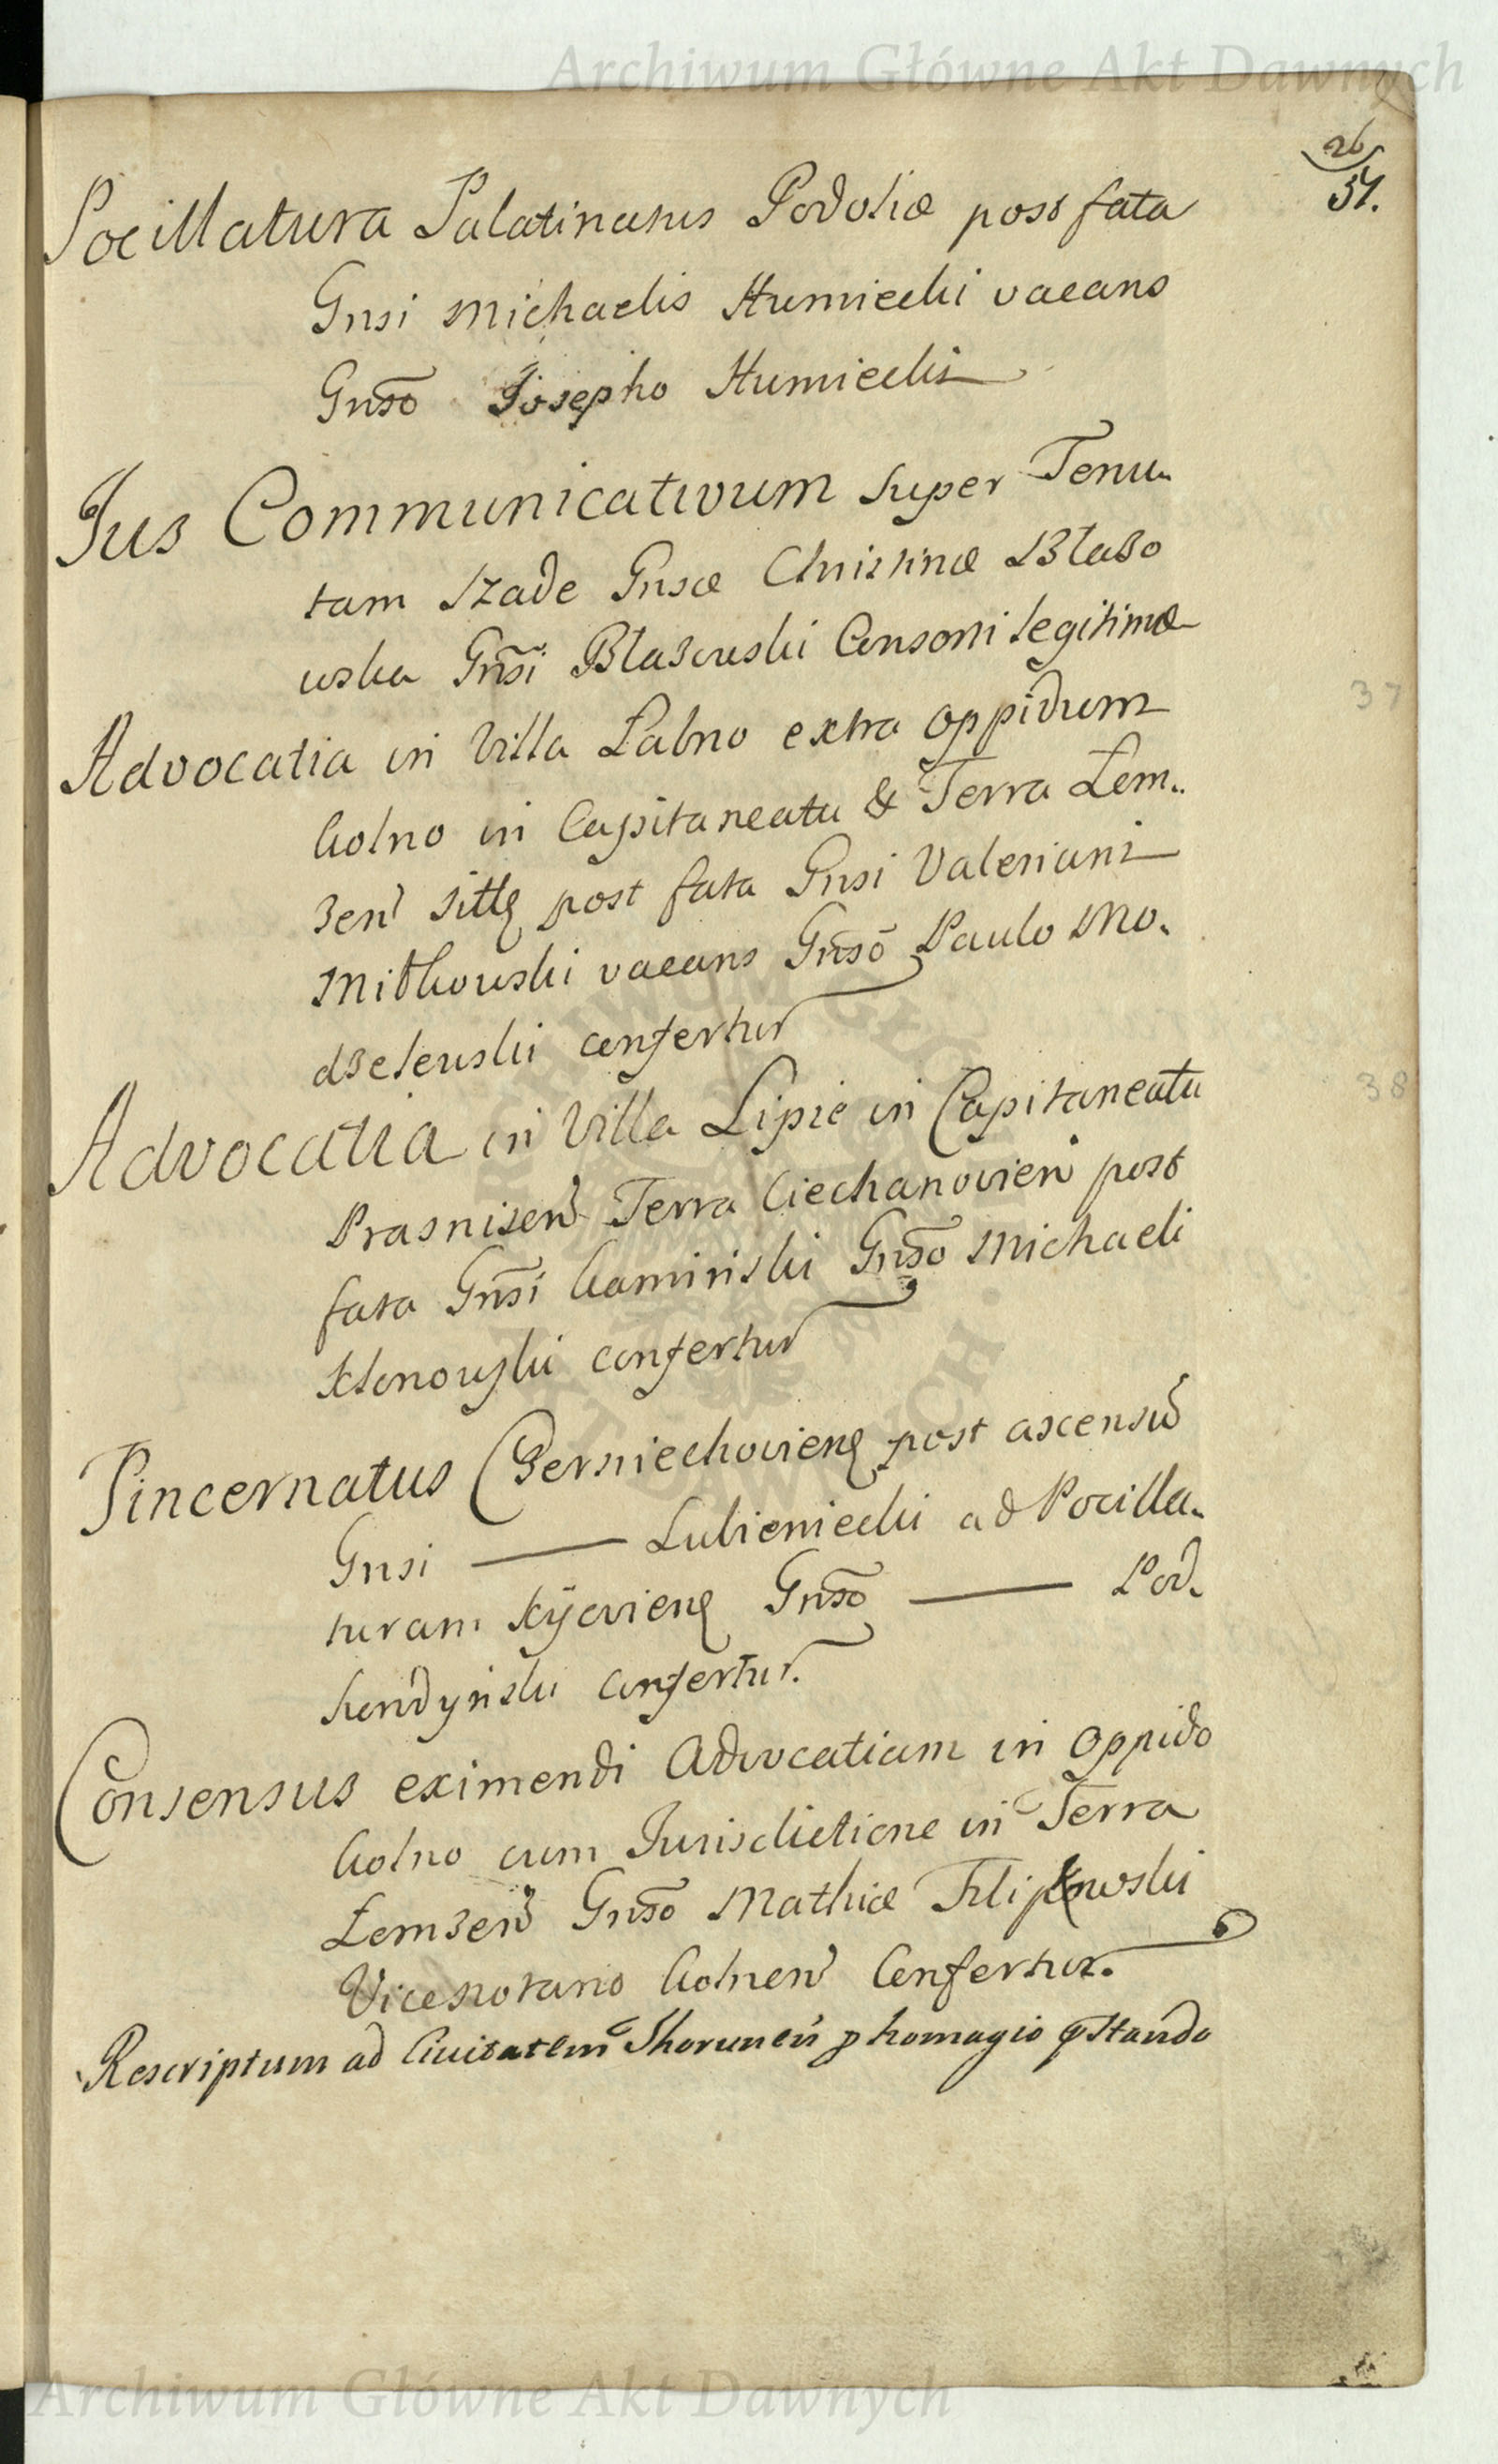 Archiwum Główne Akt Dawnych
26
51.
Pocillatura Palatinatus Podoliæ post fata
Gnsi Michaelis Humiecki vacans
Gnsō Josepho Humiecki
Jus Communicativum super Tenu-
tam Szade Gnsæ Christinæ Błazo
wska Gnsi Błazowski Consorti legitimæ
Advocatia in Villa Łabno extra oppidum
Kolno in Capitaneatu & Terra Łom-
zen sittę post fata Gnsi Valeriani
Mitkowski vacans Gnsō Paulo Mo-
dzelewski confertur
Advocatia in Villa Lipie in Capitaneatu
Prasnisen Terra Ciechanovien post
fata Gnsi Kaminski Gnsō Michaeli
Klonowski confertur
Pincernatus Czerniechovienę post ascensū
Gnsi — Lubieniecki ad Pocilla-
turam Kijovienę Gnsō — Pod-
horodynski confertur.
Consensus eximendi Advocatiam in Oppido
Kolno cum Jurisdictione in Terra
Łomzen Gnsō Mathiæ Filipkowski
Vicenotario Kolnen Confertur.
Rescriptum ad Civitatem Thorunen p homagio pstando
37
38
Archiwum Główne Akt Dawnych